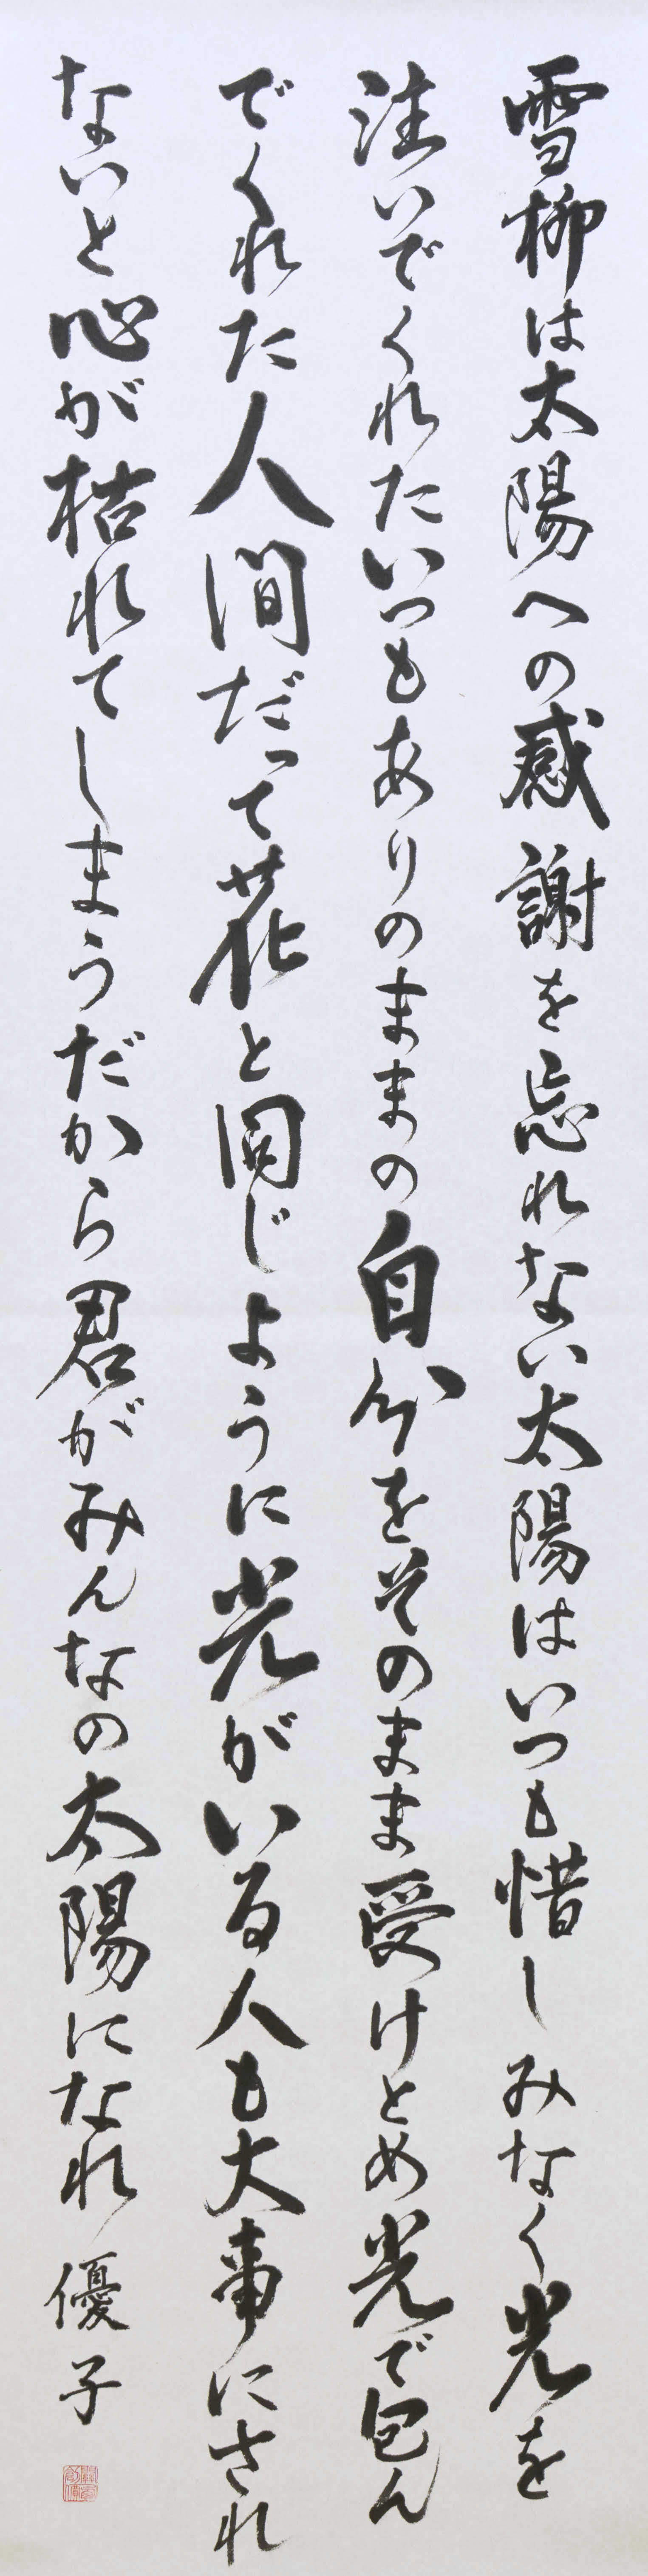 雪柳は太陽への感謝を忘れない太陽はいつも惜しみなく光を
注いでくれたいつもありのままの自分をそのまま受けとめ光で包ん
でくれた人間だって花と同じように光がいる人も大事にされ
ないと心が枯れてしまうだから君がみんなの太陽になれ 優子